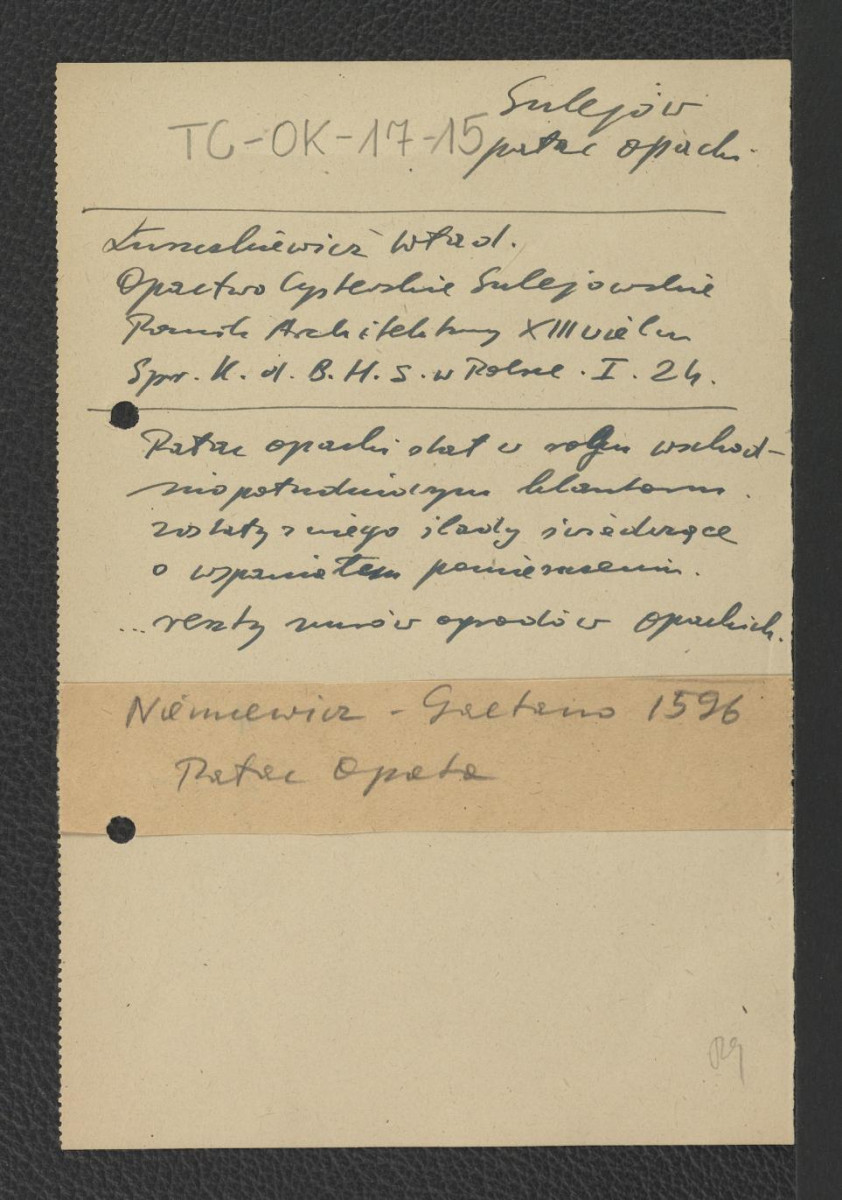 Sulejów
TC-OK-17-15
pałac opacki
Łuszczkiewicz Wład.
Opactwo Cysterskie Sulejowskie
Pomnik Architektury XIII wieku
Spr. K. d. B. H. S. w Polsce. I. 24.
Pałac opacki stał w rogu wschod-
niopołudniowym klasztoru.
zostały z niego ślady świadczące
o wspaniałem pomieszczeniu.
... reszty murów ogrodów opackich.
Niemcewicz - Gaetano 1596
Pałac Opata